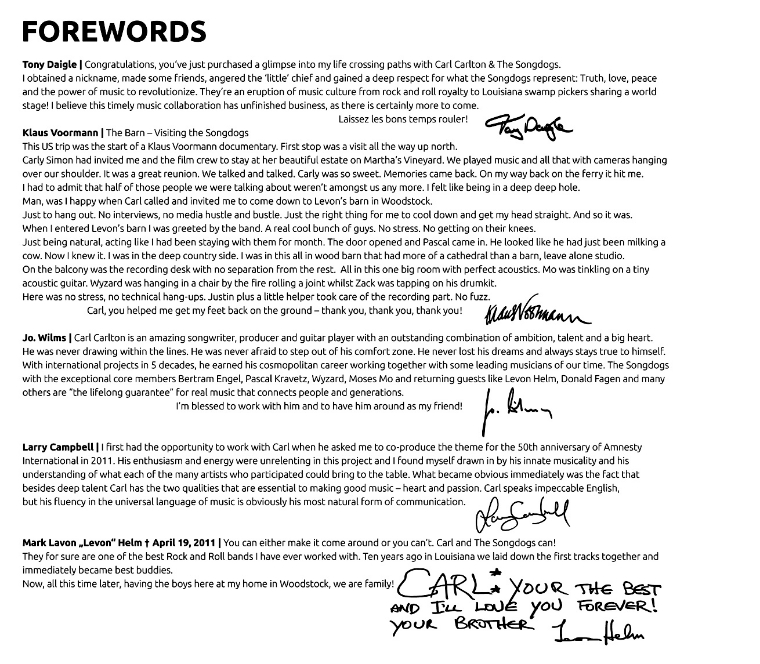 FOREWORDS
Tony Daigle | Congratulations, you've just purchased a glimpse into my life crossing paths with Carl Carlton & The Songdogs.
I obtained a nickname, made some friends, angered the 'little' chief and gained a deep respect for what the Songdogs represent: Truth, love, peace
and the power of music to revolutionize. They're an eruption of music culture from rock and roll royalty to Louisiana swamp pickers sharing a world
stage! I believe this timely music collaboration has unfinished business, as there is certainly more to come.
Laissez les bons temps rouler!
Tony Daigle
Klaus Voormann | The Barn – Visiting the Songdogs
This US trip was the start of a Klaus Voormann documentary. First stop was a visit all the way up north.
Carly Simon had invited me and the film crew to stay at her beautiful estate on Martha's Vineyard. We played music and all that with cameras hanging
over our shoulder. It was a great reunion. We talked and talked. Carly was so sweet. Memories came back. On my way back on the ferry it hit me.
I had to admit that half of those people we were talking about weren't amongst us any more. I felt like being in a deep deep hole.
Man, was I happy when Carl called and invited me to come down to Levon's barn in Woodstock.
Just to hang out. No interviews, no media hustle and bustle. Just the right thing for me to cool down and get my head straight. And so it was.
When I entered Levon's barn I was greeted by the band. A real cool bunch of guys. No stress. No getting on their knees.
Just being natural, acting like I had been staying with them for month. The door opened and Pascal came in. He looked like he had just been milking a
cow. Now I knew it. I was in the deep country side. I was in this all in wood barn that had more of a cathedral than a barn, leave alone studio.
On the balcony was the recording desk with no separation from the rest. All in this one big room with perfect acoustics. Mo was tinkling on a tiny
acoustic guitar. Wyzard was hanging in a chair by the fire rolling a joint whilst Zack was tapping on his drumkit.
Here was no stress, no technical hang-ups. Justin plus a little helper took care of the recording part. No fuzz.
Carl, you helped me get my feet back on the ground – thank you, thank you, thank you!
Klaus Voormann
Jo. Wilms | Carl Carlton is an amazing songwriter, producer and guitar player with an outstanding combination of ambition, talent and a big heart.
He was never drawing within the lines. He was never afraid to step out of his comfort zone. He never lost his dreams and always stays true to himself.
With international projects in 5 decades, he earned his cosmopolitan career working together with some leading musicians of our time. The Songdogs
with the exceptional core members Bertram Engel, Pascal Kravetz, Wyzard, Moses Mo and returning guests like Levon Helm, Donald Fagen and many
others are "the lifelong guarantee" for real music that connects people and generations.
I'm blessed to work with him and to have him around as my friend!
Jo. Wilms
Larry Campbell | I first had the opportunity to work with Carl when he asked me to co-produce the theme for the 50th anniversary of Amnesty
International in 2011. His enthusiasm and energy were unrelenting in this project and I found myself drawn in by his innate musicality and his
understanding of what each of the many artists who participated could bring to the table. What became obvious immediately was the fact that
besides deep talent Carl has the two qualities that are essential to making good music – heart and passion. Carl speaks impeccable English,
but his fluency in the universal language of music is obviously his most natural form of communication.
Larry Campbell
Mark Lavon „Levon“ Helm † April 19, 2011 | You can either make it come around or you can't. Carl and The Songdogs can!
They for sure are one of the best Rock and Roll bands I have ever worked with. Ten years ago in Louisiana we laid down the first tracks together and
immediately became best buddies.
Now, all this time later, having the boys here at my home in Woodstock, we are family!
CARL: YOUR THE BEST
AND I'LL LOVE YOU FOREVER!
YOUR BROTHER Levon Helm